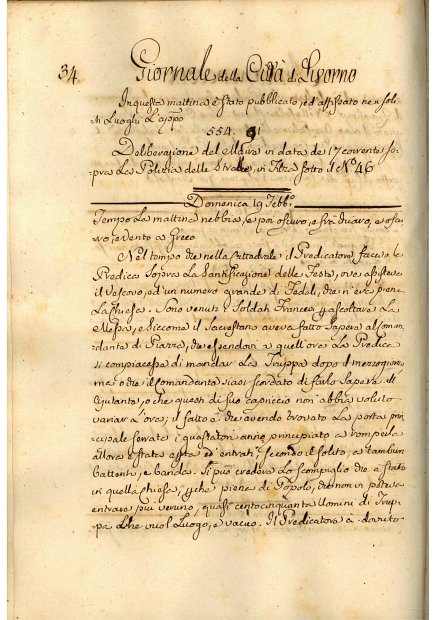 34 Giornale della Città di Livorno
In questa mattina è stato pubblicato, ed affissato ne i soli-
ti Luoghi L'app.o
554. 91
Deliberazione del Maire in data de 17 corrente so-
pra La Politia delle Strade, in Filza sotto il N.o 46
Domenica 19 Febb.o
Tempo La mattina nebbia, e poi oscuro, e
ro, e vento a Greco
Nel tempo che nella Cattedrale il Predicatore faceva la
Predica Sopra La Santificazione delle Feste, ove assisteva
il Vescovo, ed un numero grande di Fedeli, che n'era piena
La Chiesa. Sono venuti i Soldati Francesi p ascoltare La
Messa, e siccome il Sacrestano aveva fatto Sapere al Coman-
dante di Piazza, che essendovi a quell'ora La Predica
si compiacesse di mandar La Truppa dopo il mezzogiorno
ma o che il Comandante siasi scordato di farlo Sapere all'
Ajutante, o che questi di suo capriccio non abbia voluto
variar L'ora; il fatto è che avendo trovato La porta prin-
cipale serrata i guastatori anno principiato a romperla
allora è stata aperta ed entrati, secondo il solito, a tamburi
battenti, e banda. Si può credere Lo scompiglio che è stato
in quella Chiesa, p che piena di Popolo, che non vi poteva
entrare più veruno, quasi centocinquanta Uomini di Trup-
pa che vuol Luogo, e vacuo. Il Predicatore à dovuto